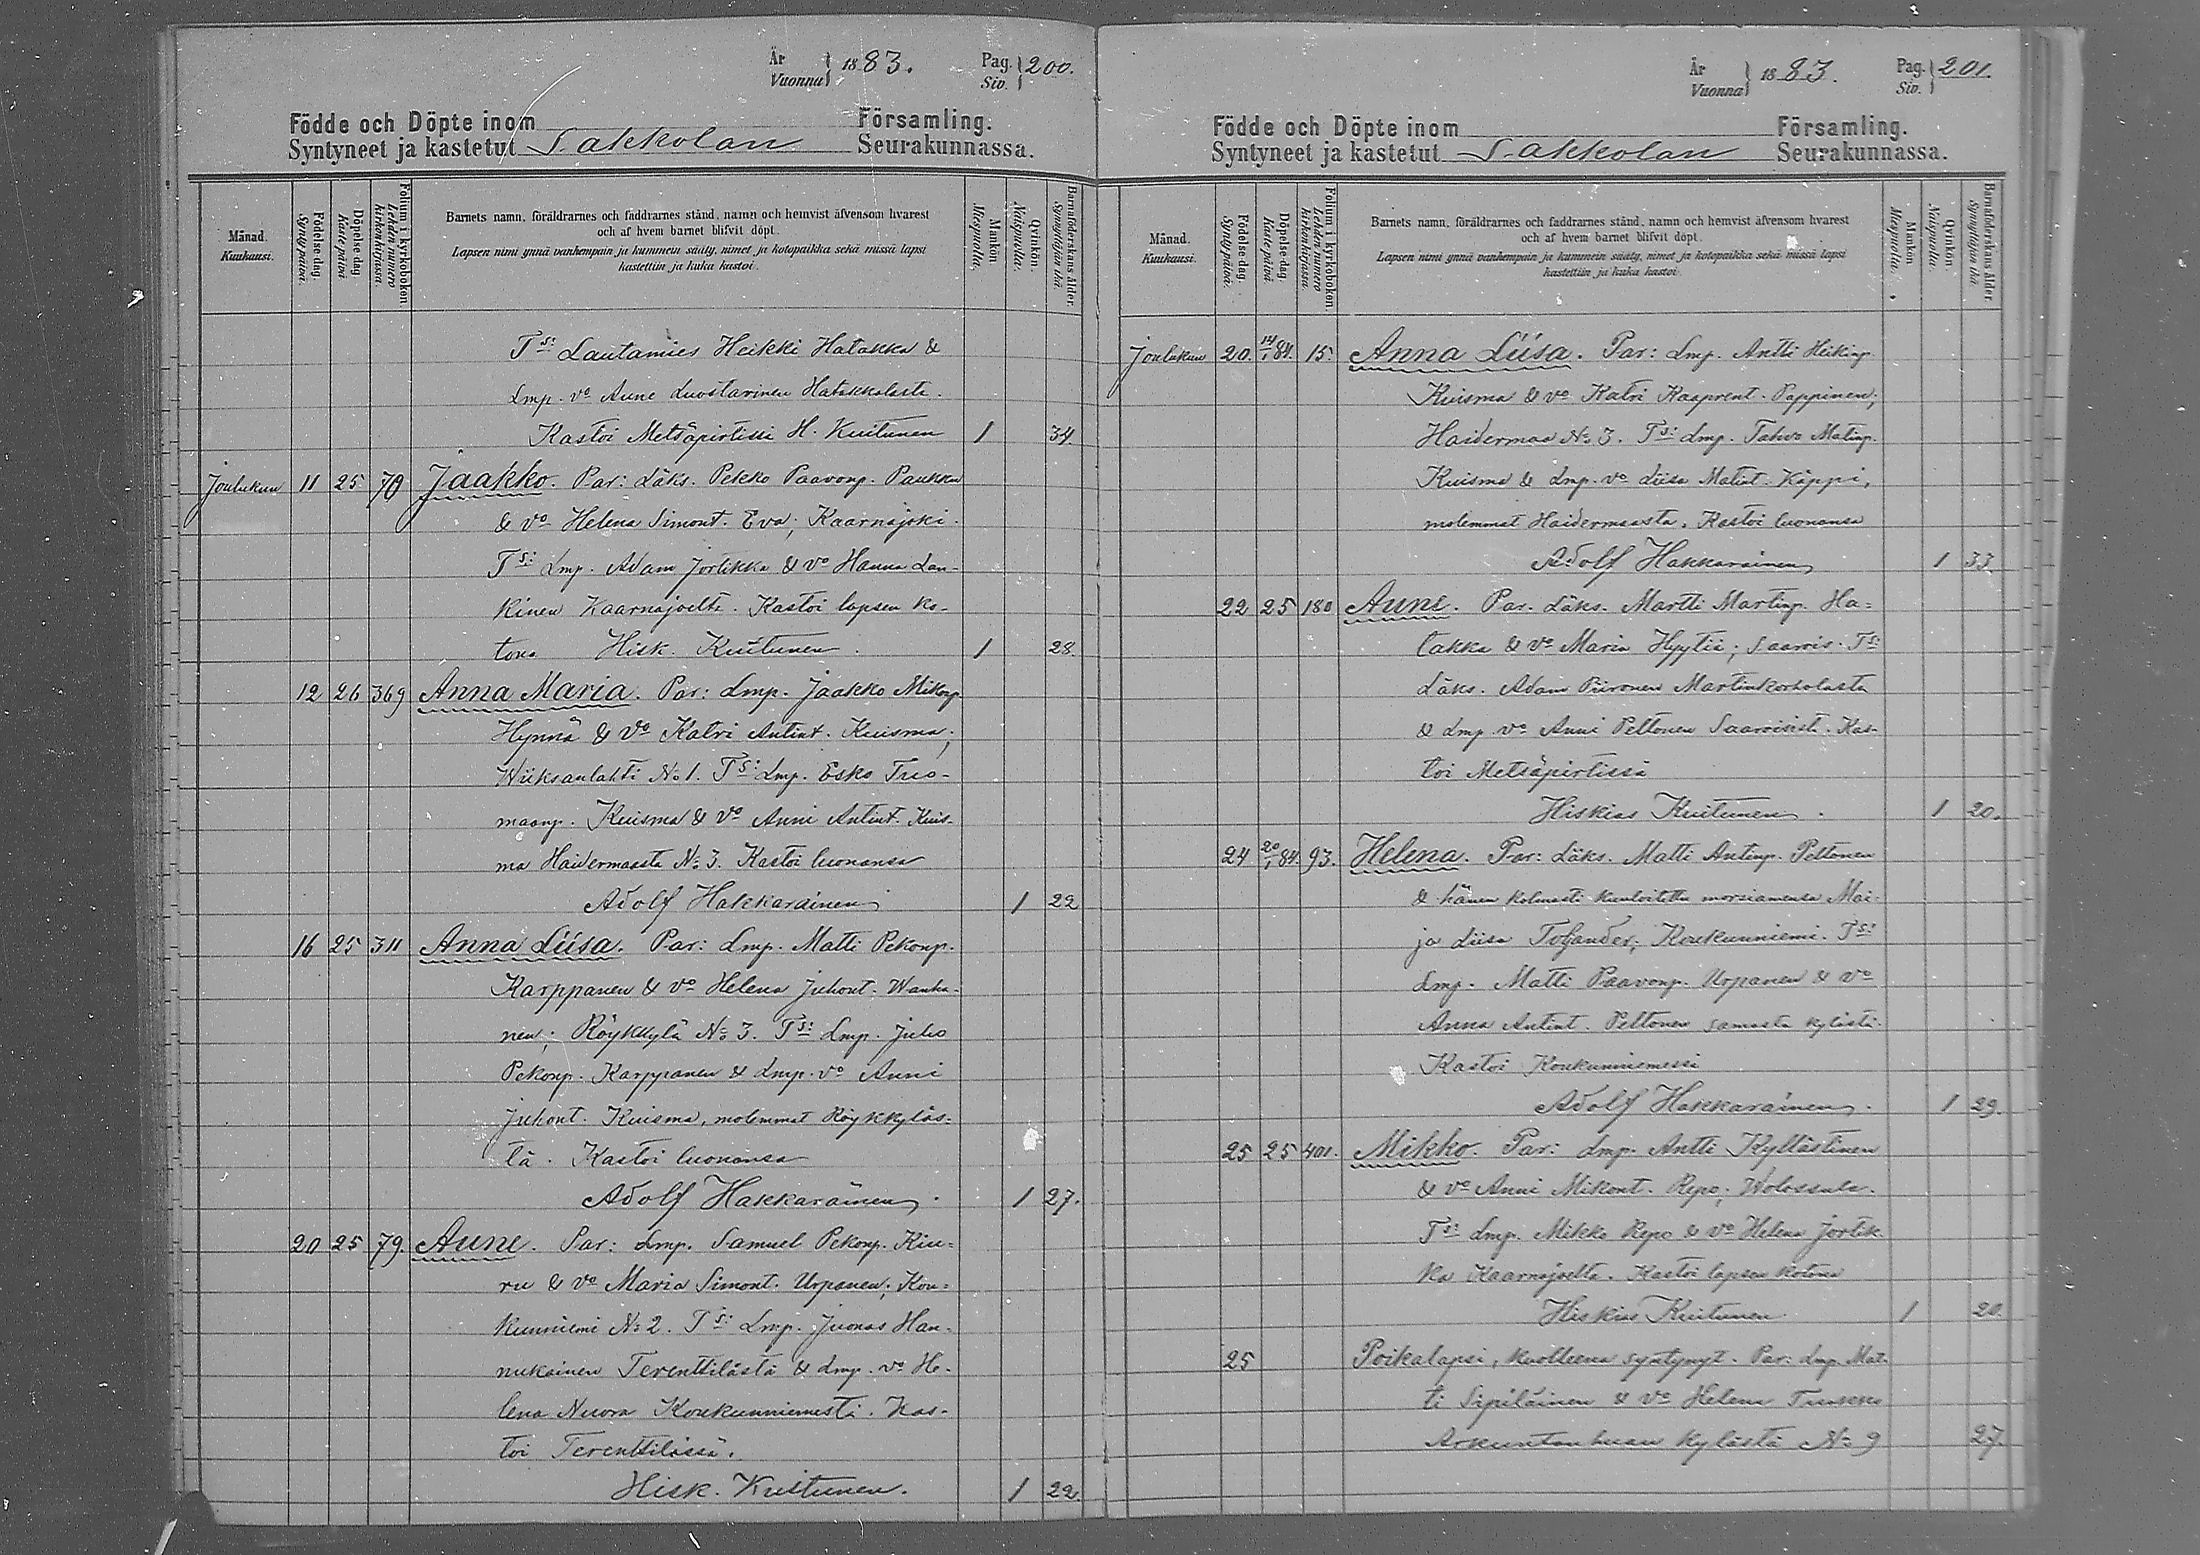 År
Vuonna 1883.
Pag.
Siv. 200.
Födde och Döpte inom Församling.
Syntyneet ja kastetut Sakkolan Seurakunnassa.
Månad. Kuukausi.
Födelse-dag. Syntypäivä.
Döpelse-dag. Kastepäivä.
Folium i kyrkoboken. Lehden numero kirkonkirjassa.
Barnets namn, föräldrarnes och faddrarnes stånd, namn och hemvist äfvensom hvarest
och af hvem barnet blifvit döpt.
Lapsen nimi ynnä vanhempain ja kummein sääty, nimet ja kotopaikka sekä missä lapsi
kastettiin ja kuka kastoi.
Mankön. Miespuolia.
Qvinkön. Naispuolia.
Barnaföderskans ålder. Synnyttäjän ikä.
Ts: Lautamies Heikki Hatakka &
Lmp. vo Aune Luostarinen Hatakkalasta.
Kastoi Metsäpirtissä H. Kuitunen 1 34
Joulukun 11 25 70 Jaakko. Par: Läks. Pekko Paavonp. Paukku
& vo Helena Simont. Eva; Kaarnajoki.
Ts: Lmp. Adam Jortikka & vo Hanna Lan-
kinen Kaarnajoelta. Kastoi lapsen ko-
tona Hisk. Kuitunen. 1 28
12 26 369 Anna Maria. Par: Lmp. Jaakko Mikonp.
Hynnä & vo Katri Antint. Kuisma;
Wiiksanlahti No 1. Ts: Lmp. Esko Tuo-
maanp. Kuisma & vo Anni Antint. Kuis-
ma Haidermaasta No 3. Kastoi luonansa
Adolf Hakkarainen 1 22
16 25 311 Anna Liisa. Par: Lmp. Matti Pekonp.
Karppanen & vo Helena Juhont. Wanha-
nen; Röykkylä No 3. Ts: Lmp. Juho
Pekonp. Karppanen & Lmp. vo Anni
Juhont. Kuisma, molemmat Röykkyläs-
tä. Kastoi luonansa
Adolf Hakkarainen. 1 27.
20 25 79. Aune. Par: Lmp. Samuel Pekonp. Kiu-
ru & vo Maria Simont. Urpanen; Kou-
kunniemi No 2. Ts: Lmp. Juonas Han-
nukainen Terenttilästä & Lmp. vo He-
lena Nuora Koukunniemestä. Kas-
toi Terenttilässä.
Hisk. Kuitunen. 1 22
År
Vuonna 1883.
Pag.
Siv. 201.
Födde och Döpte inom Församling.
Syntyneet ja kastetut Sakkolan Seurakunnassa.
Månad. Kuukausi.
Födelse-dag. Syntypäivä.
Döpelse-dag. Kastepäivä.
Folium i kyrkoboken. Lehden numero kirkonkirjassa.
Barnets namn, föräldrarnes och faddrarnes stånd, namn och hemvist äfvensom hvarest
och af hvem barnet blifvit döpt.
Lapsen nimi ynnä vanhempain ja kummein sääty, nimet ja kotopaikka sekä missä lapsi
kastettiin ja kuka kastoi.
Mankön. Miespuolia.
Qvinkön. Naispuolia.
Barnaföderskans ålder. Synnyttäjän ikä.
Joulukun 20. 14/1 84. 15. Anna Liisa. Par: Lmp. Antti Heikinp.
Kuisma & vo Katri Kaaprent. Pappinen;
Haidermaa No 3. Ts: Lmp. Tahvo Matinp.
Kuisma & Lmp. vo Liisa Matint. Käppi,
molemmat Haidermaasta. Kastoi luonansa
Adolf Hakkarainen 1 33
22 25 180 Aune. Par. Läks. Martti Martinp. Ha-
takka & vo Maria Hyytiä; Saarois. Ts:
Läks. Adam Piironen Martinkorholasta
& Lmp. vo Anni Peltonen Saaroisista. Kas-
toi Metsäpirtissä
Hiskias Kuitunen. 1 20.
24 20/1 84. 93. Helena. Par: Läks. Matti Antinp. Peltonen
& hänen kolmasti kuuloitettu morsiamensa Mai-
ja Liisa Tofjander; Koukunniemi. Ts:
Lmp. Matti Paavonp. Urpanen & vo
Anna Antint. Peltonen samasta kylästä.
Kastoi Koukunniemessä
Adolf Hakkarainen. 1 29.
25 25 401. Mikko. Par: Lmp. Antti Kyllästinen
& vo Anni Mikont. Repo; Wolossula.
Ts: Lmp. Mikko Repo & vo Helena Jortik-
ka Kaarnajoelta. Kastoi lapsen kotona
Hiskias Kuitunen 1 20.
25 Poikalapsi, kuolleena syntynyt. Par: Lmp. Mat-
ti Sipiläinen & vo Helena
kylästä No 9 27.